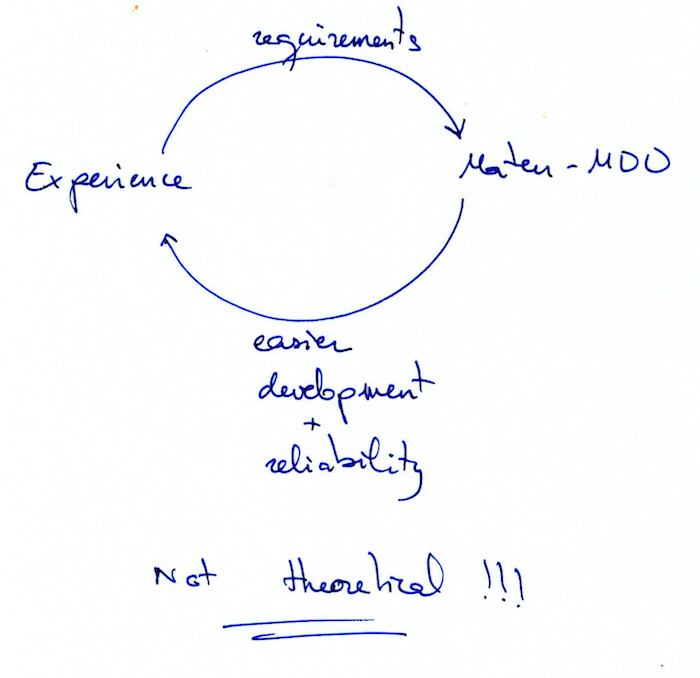 requirements
Experience
Maten - MDO
easier
development
+
reliability
Not theoretical !!!